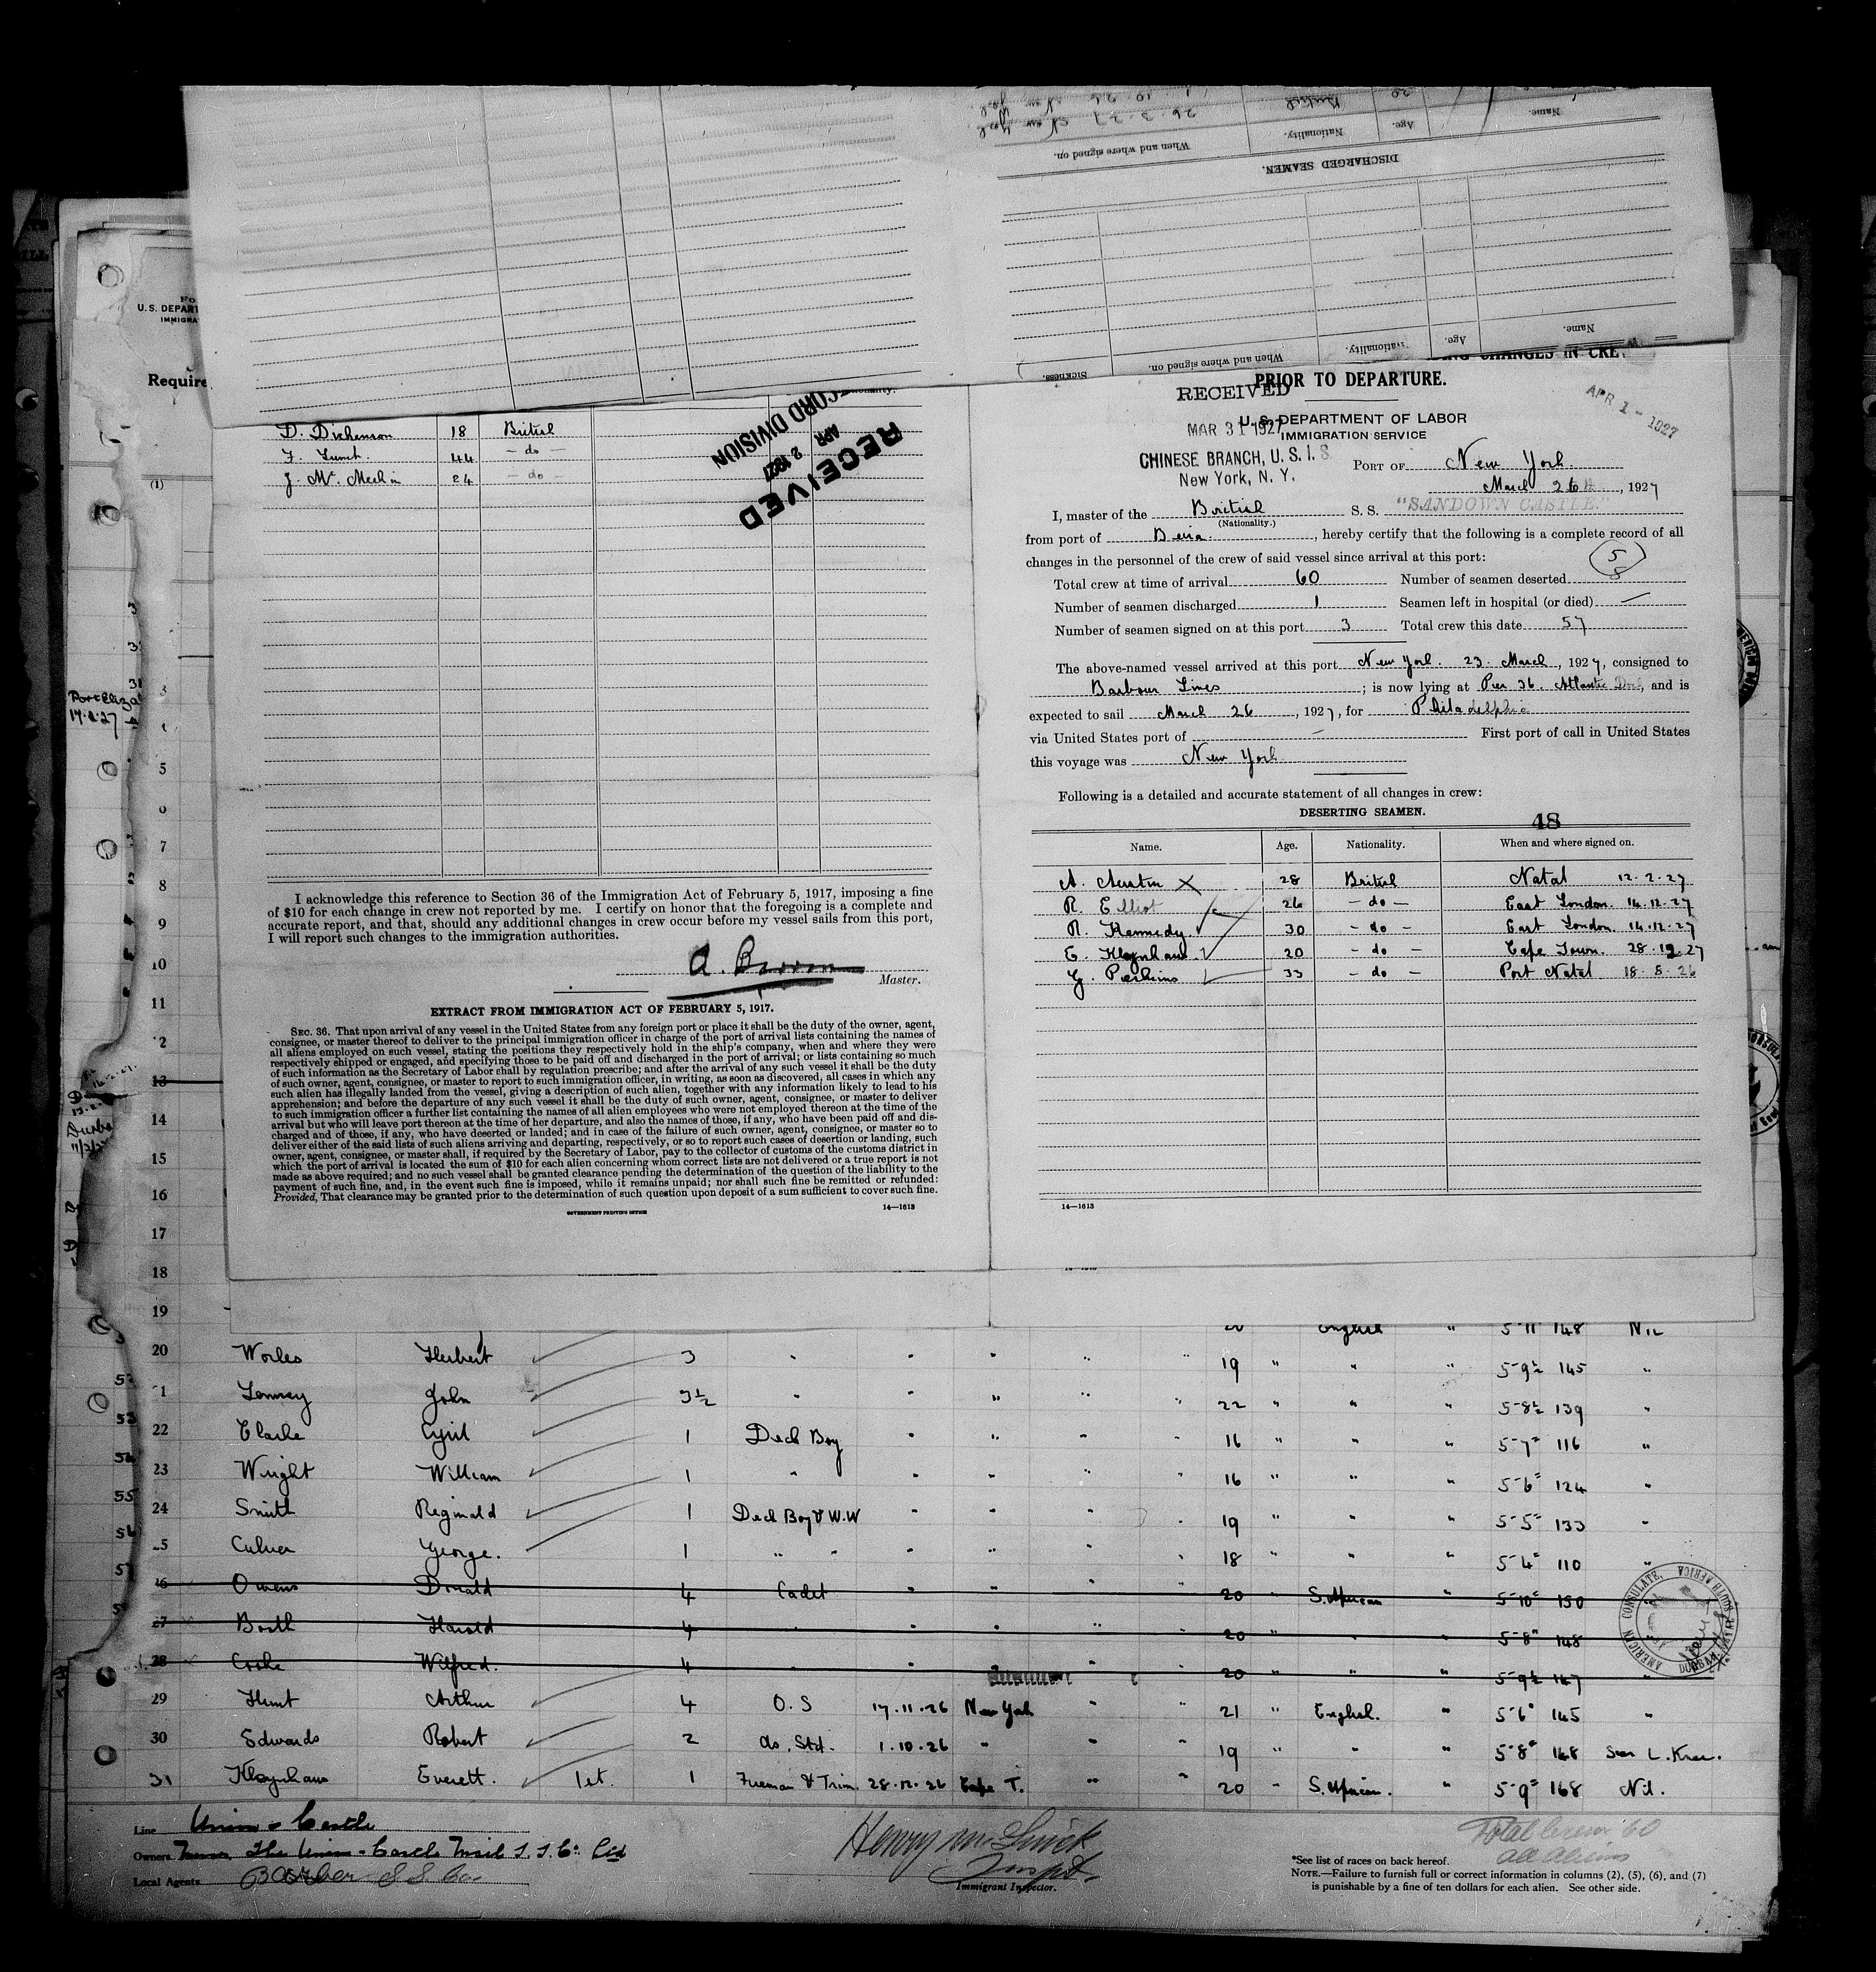 DISCHARGED SEAMEN.
Name. Age. Nationality. When and where signed on.
26.3.27 New York
Name. Age. Nationality. When and where signed on. Sickness.
U.S. DEPART
IMMIGRA
Require
D. Dickenson 18 British
F. Lunt. 44 — do —
J. Mc. Meckin 24 — do —
RECEIVED
APR 2 1927
RECORD DIVISION
I acknowledge this reference to Section 36 of the Immigration Act of February 5, 1917, imposing a fine
of $10 for each change in crew not reported by me. I certify on honor that the foregoing is a complete and
accurate report, and that, should any additional changes in crew occur before my vessel sails from this port,
I will report such changes to the immigration authorities.
A. Brown
Master.
EXTRACT FROM IMMIGRATION ACT OF FEBRUARY 5, 1917.
SEC. 36. That upon arrival of any vessel in the United States from any foreign port or place it shall be the duty of the owner, agent,
consignee, or master thereof to deliver to the principal immigration officer in charge of the port of arrival lists containing the names of
all aliens employed on such vessel, stating the positions they respectively hold in the ship's company, when and where they were
respectively shipped or engaged, and specifying those to be paid off and discharged in the port of arrival; or lists containing so much
of such information as the Secretary of Labor shall by regulation prescribe; and after the arrival of any such vessel it shall be the duty
of such owner, agent, consignee, or master to report to such immigration officer, in writing, as soon as discovered, all cases in which any
such alien has illegally landed from the vessel, giving a description of such alien, together with any information likely to lead to his
apprehension; and before the departure of any such vessel it shall be the duty of such owner, agent, consignee, or master to deliver
to such immigration officer a further list containing the names of all alien employees who were not employed thereon at the time of the
arrival but who will leave port thereon at the time of her departure, and also the names of those, if any, who have been paid off and dis-
charged and of those, if any, who have deserted or landed; and in case of the failure of such owner, agent, consignee, or master so to
deliver either of the said lists of such aliens arriving and departing, respectively, or so to report such cases of desertion or landing, such
owner, agent, consignee, or master shall, if required by the Secretary of Labor, pay to the collector of customs of the customs district in
which the port of arrival is located the sum of $10 for each alien concerning whom correct lists are not delivered or a true report is not
made as above required; and no such vessel shall be granted clearance pending the determination of the question of the liability to the
payment of such fine, and, in the event such fine is imposed, while it remains unpaid; nor shall such fine be remitted or refunded:
Provided, That clearance may be granted prior to the determination of such question upon deposit of a sum sufficient to cover such fine.
GOVERNMENT PRINTING OFFICE 14—1613
CHANGES IN CREW
PRIOR TO DEPARTURE.
RECEIVED
MAR 31 1927
CHINESE BRANCH, U. S. I. S.
New York, N. Y.
APR 1 - 1927
U. S. DEPARTMENT OF LABOR
IMMIGRATION SERVICE
PORT OF New York.
March 26th, 1927
I, master of the British S. S. "SANDOWN CASTLE."
(Nationality.)
from port of Beira., hereby certify that the following is a complete record of all
changes in the personnel of the crew of said vessel since arrival at this port:
Total crew at time of arrival 60 Number of seamen deserted 5
Number of seamen discharged 1 Seamen left in hospital (or died) —
Number of seamen signed on at this port 3 Total crew this date 57
The above-named vessel arrived at this port New York. 23. March, 1927, consigned to
Barbour Lines; is now lying at Pier 36. Atlantic Dock, and is
expected to sail March 26, 1927, for Philadelphia
via United States port of — First port of call in United States
this voyage was New York
Following is a detailed and accurate statement of all changes in crew:
DESERTING SEAMEN.
48
Name. Age. Nationality. When and where signed on.
A. Austin X 28 British Natal 12.2.27
R. Elliot 26 — do — East London. 14.12.27
R. Kennedy 30 — do — East London. 14.12.27
E. Kleynhaus 20 — do — Cape Town. 28.12.27
G. Perkins 33 — do — Port Natal 18.8.26
14—1613
English " 5-11 148 Nil
20 Worles Herbert 3 " " " " " 19 " " " 5-9½ 145 "
21 Lenney John 3½ " " " " " 22 " " " 5-8½ 139 "
22 Clarke Cyril 1 Deck Boy " " " " 16 " " " 5-7" 116 "
23 Wright William 1 " " " " " 16 " " " 5-6" 124 "
24 Smith Reginald 1 Deck Boy & W.W " " " " 19 " " " 5-5" 133 "
25 Culver George. 1 " " " " " " 18 " " " 5-4" 110 "
26 Owens Donald 4 Cadet " " " " 20 " S. African " 5-10" 150
27 Booth Harold 4 " " " " " 20 " " " 5-8" 148
28 Cooke Wilfred. 4 " " " 20 " " " 5-9½ 147 "
29 Hunt Arthur 4 O.S 17.11.26 New York " " 21 " English. " 5-6" 145 "
30 Edwards Robert 2 As. Std. 1.10.26 " " " 19 " " " 5-8" 148 Scar L. Knee.
31 Kleynhaus Everett. 1st. 1 Fireman & Trim. 28.12.26 Cape T. " " 20 " S. African. " 5-9" 168 Nil.
AMERICAN CONSULATE, DURBAN, SOUTH AFRICA
Line Union-Castle
Owners The Union-Castle Mail S.S. Co. Ltd
Local Agents Barber S S Co.
Immigrant Inspector.
Total Crew 60
All Aliens
*See list of races on back hereof.
NOTE.—Failure to furnish full or correct information in columns (2), (5), (6), and (7)
is punishable by a fine of ten dollars for each alien. See other side.